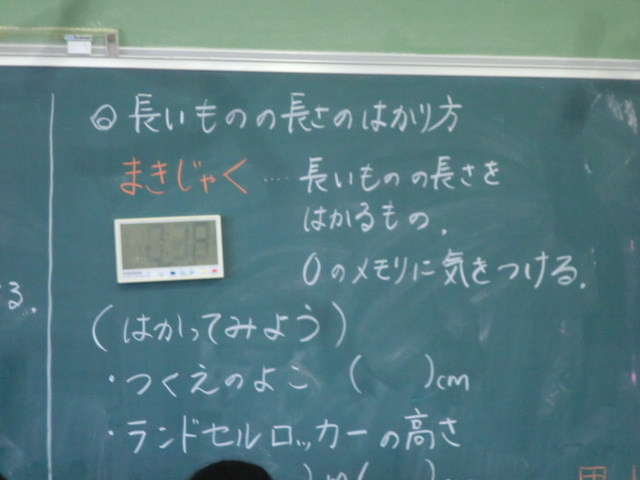 ◎長いものの長さのはかり方
まきじゃく…長いものの長さを
はかるもの.
0のメモリに気をつける.
(はかってみよう)
・つくえのよこ (　　)cm
・ランドセルロッカーの高さ
る.
)m(　　)